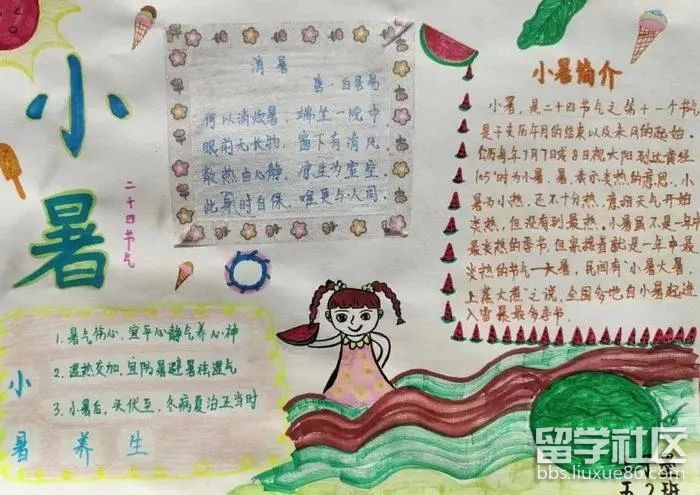 小暑
二十四节气
消暑
唐·白居易
何以消烦暑，端坐一院中
眼前无长物，窗下有清风
散热由心静，凉生为室空
此身时自保，难更与人同
小暑简介
小暑，是二十四节气之第十一个节气
是干支历午月的结束以及未月的起始
公历每年7月7日或8日视太阳到达黄经
105°时为小暑．暑，表示炎热的意思，小
暑为小热，还不十分热．意指天气开始
炎热，但没到最热，小暑虽不是一年中
最炎热的季节，但紧接着就是一年中最
炎热的节气一大暑，民间有"小暑大暑
上蒸大煮"之说，全国多地自小暑起进
入雷暴最多季节
1.暑气伤心，宜平心静气养心神
2.湿热交加，宜防暑避暑祛湿气
3.小暑后，头伏至，冬病夏治正当时
小暑养生
留学社区
bbs.liuxue86.com
五2班